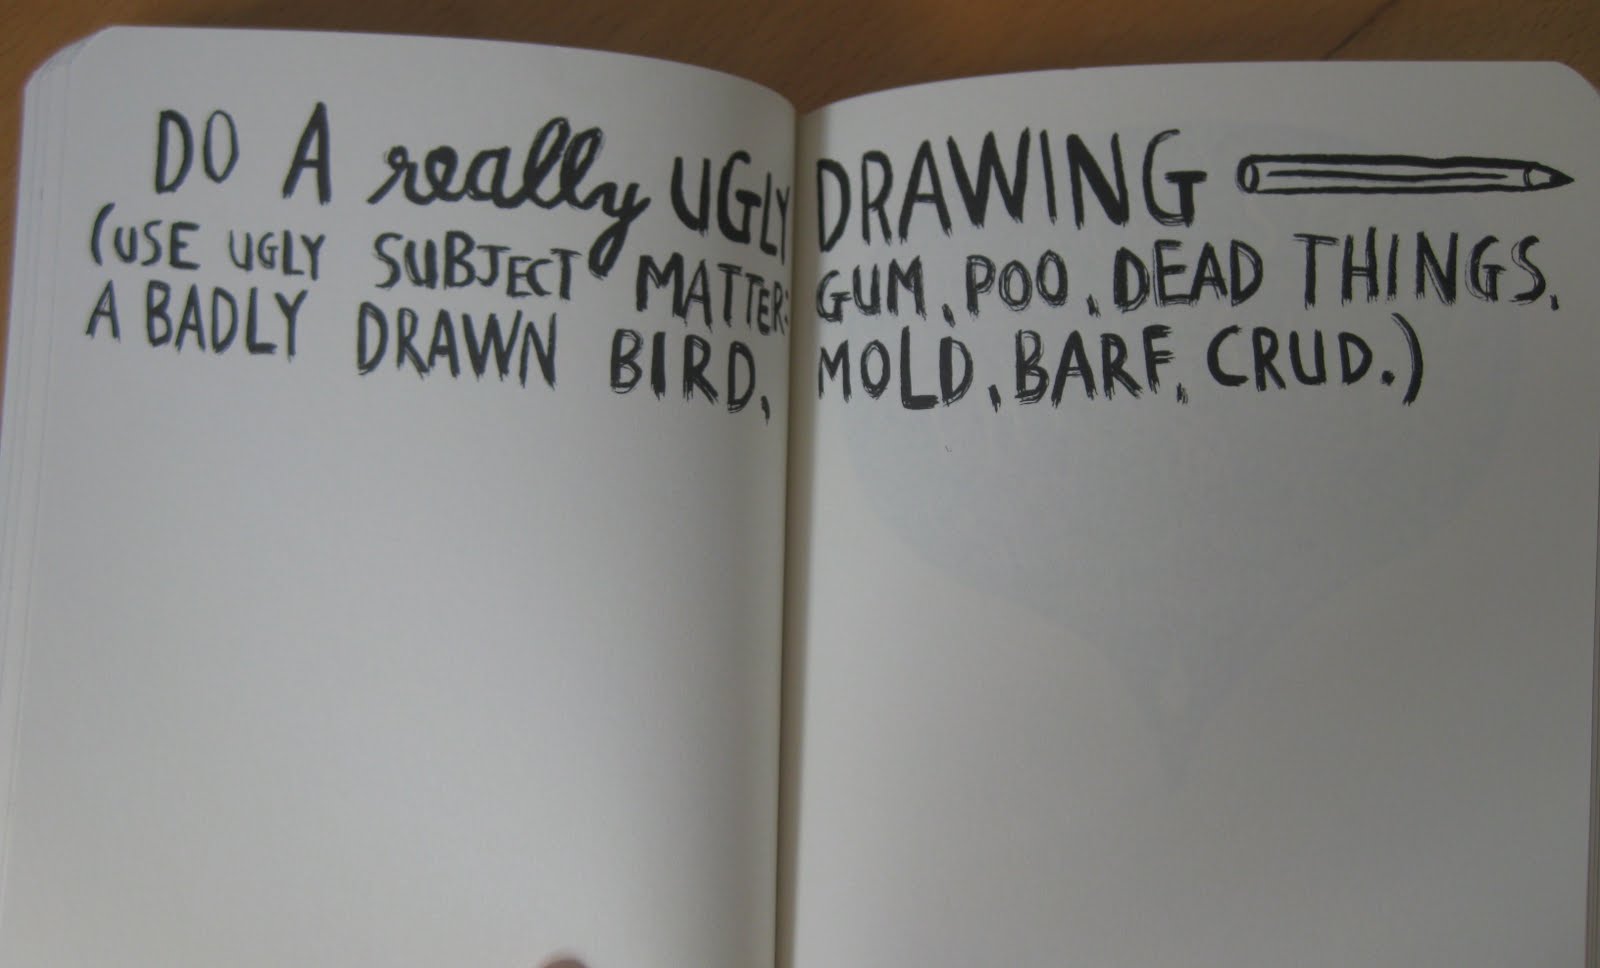 DO A really UGLY DRAWING
(USE UGLY SUBJECT MATTER: GUM, POO, DEAD THINGS,
A BADLY DRAWN BIRD, MOLD, BARF, CRUD.)